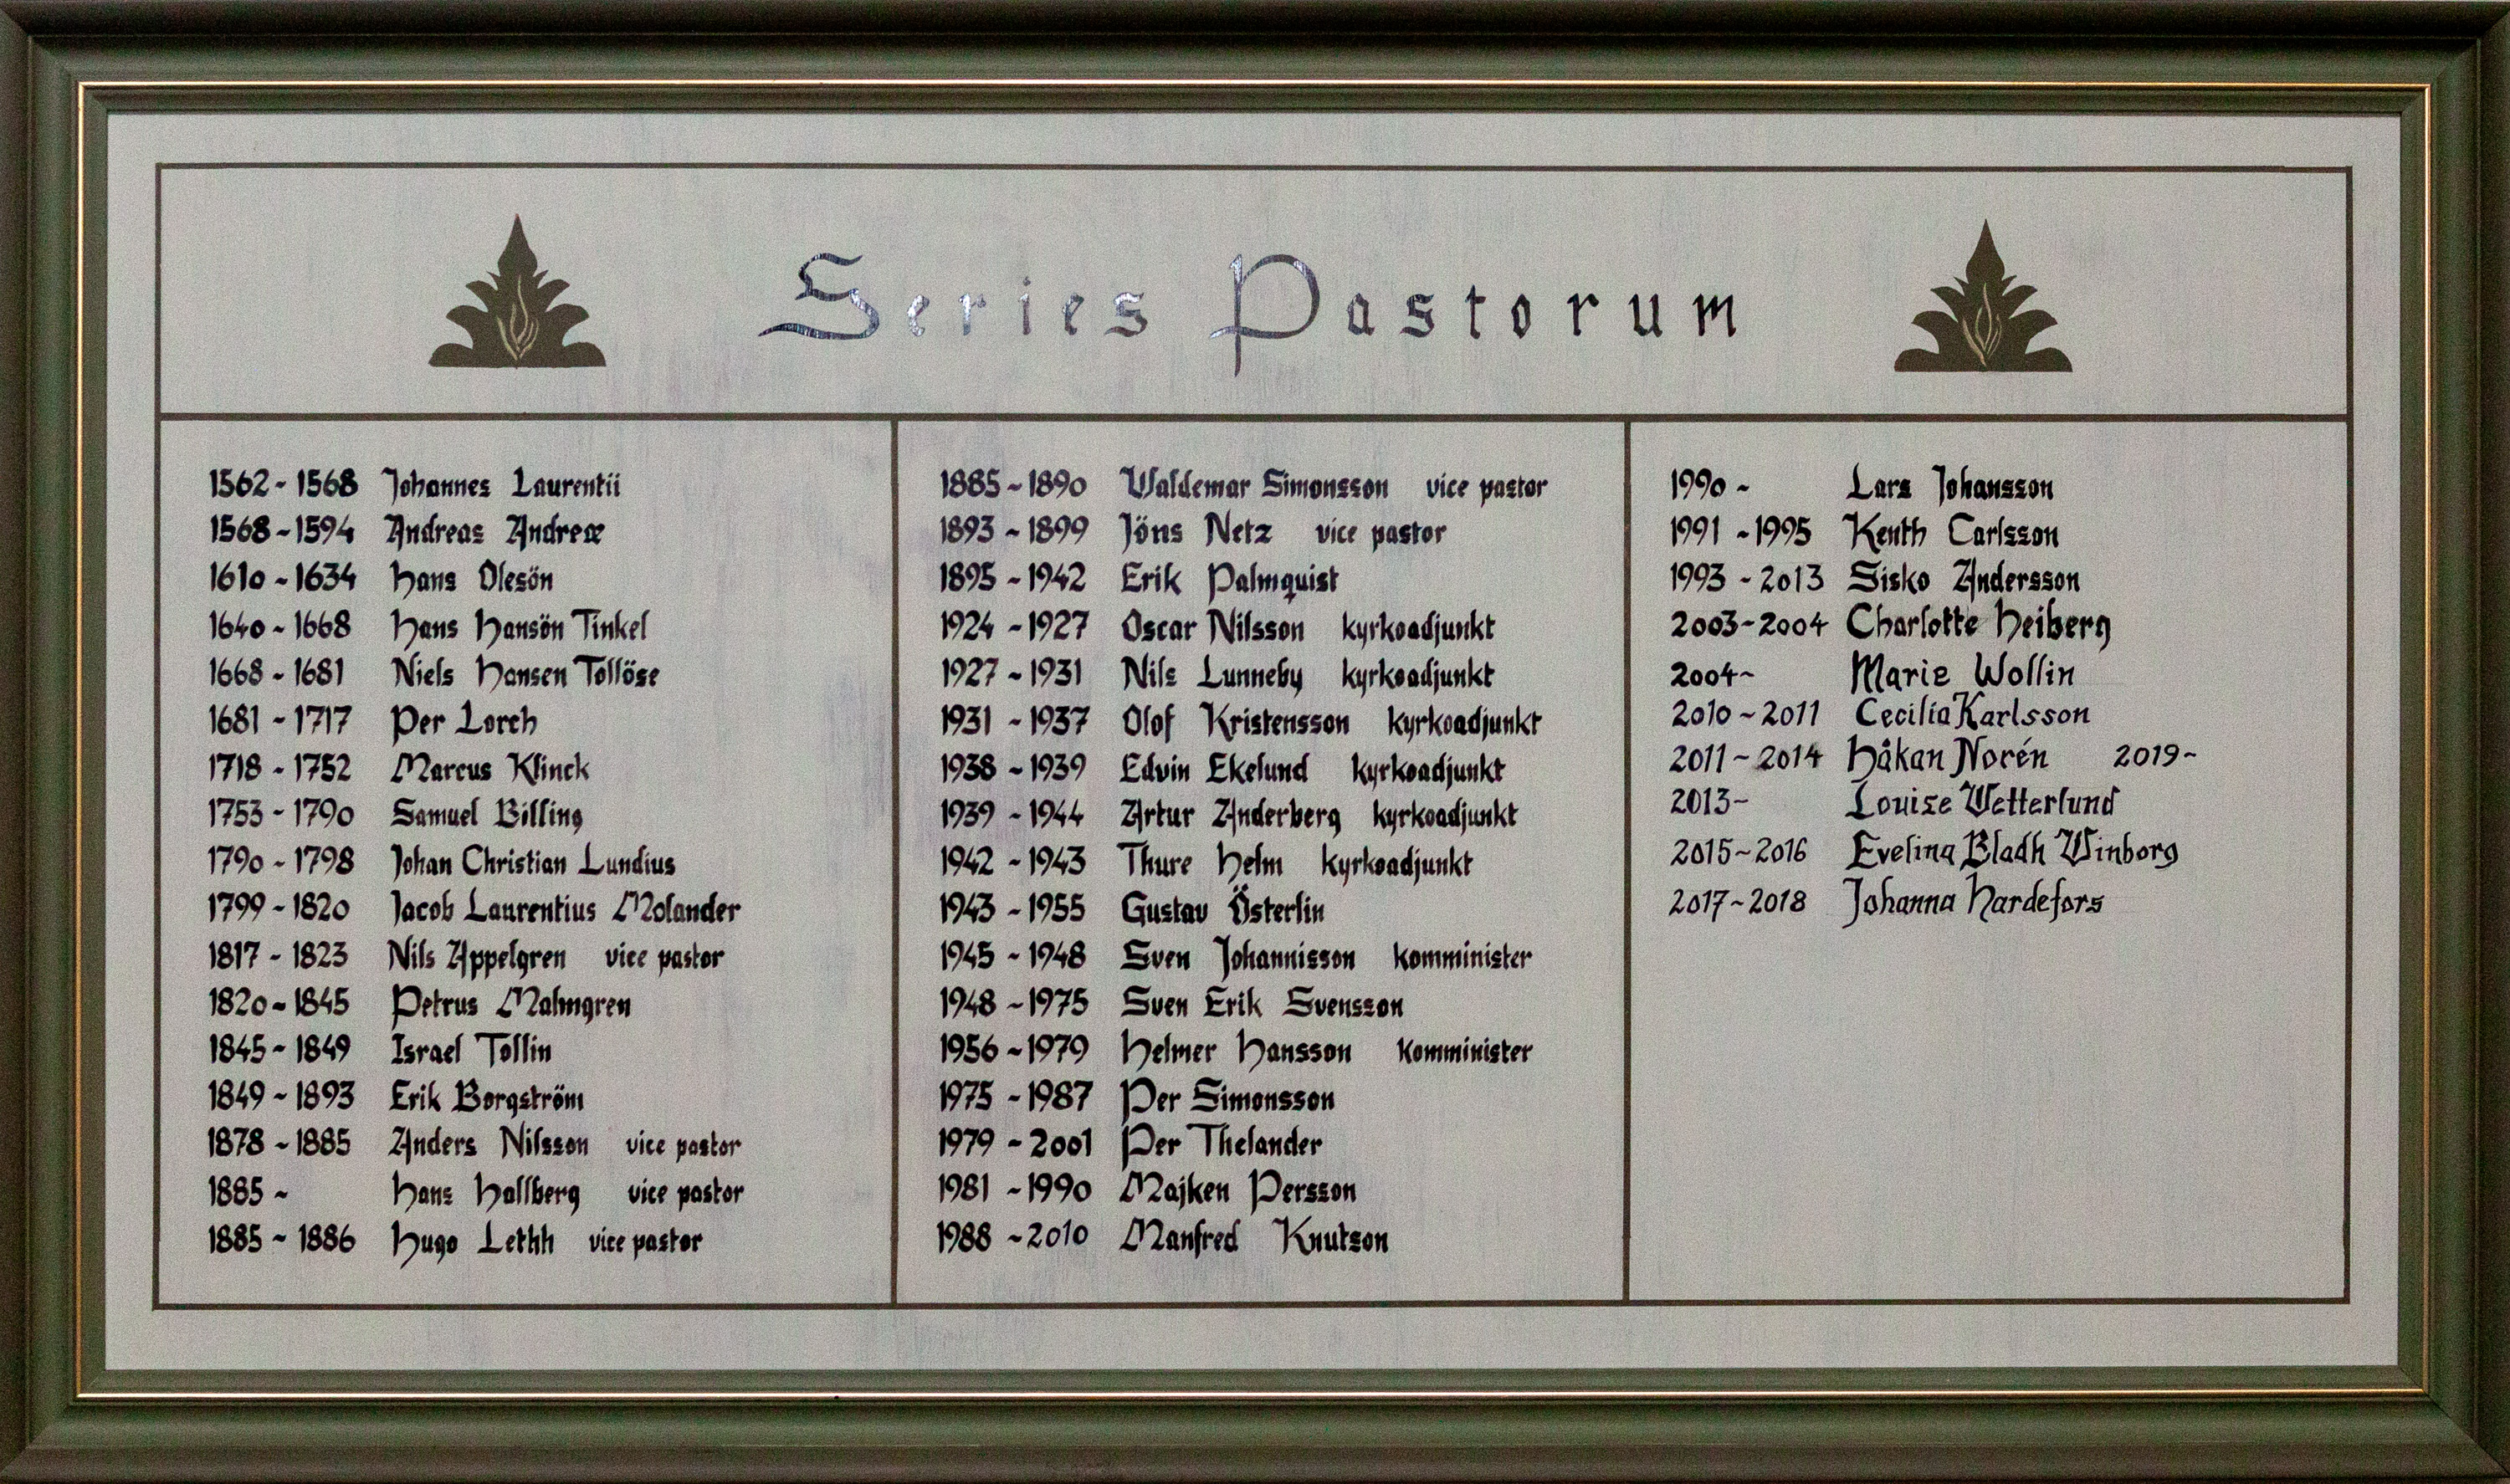 Series Pastorum
1562 - 1568 Johannes Laurentii
1568 - 1594 Andreas Andreæ
1610 - 1634 Hans Olesön
1640 - 1668 Hans Hansön Tinkel
1668 - 1681 Niels Hansen Tollöse
1681 - 1717 Per Lorch
1718 - 1752 Marcus Klinck
1753 - 1790 Samuel Billing
1790 - 1798 Johan Christian Lundius
1799 - 1820 Jacob Laurentius Molander
1817 - 1823 Nils Appelgren vice pastor
1820 - 1845 Petrus Malmgren
1845 - 1849 Israel Tollin
1849 - 1893 Erik Borgström
1878 - 1885 Anders Nilsson vice pastor
1885 - Hans Hallberg vice pastor
1885 - 1886 Hugo Lethh vice pastor
1885 - 1890 Waldemar Simonsson vice pastor
1893 - 1899 Jöns Netz vice pastor
1895 - 1942 Erik Palmquist
1924 - 1927 Oscar Nilsson kyrkoadjunkt
1927 - 1931 Nils Lunneby kyrkoadjunkt
1931 - 1937 Olof Kristensson kyrkoadjunkt
1938 - 1939 Edvin Ekelund kyrkoadjunkt
1939 - 1944 Artur Anderberg kyrkoadjunkt
1942 - 1943 Thure Helm kyrkoadjunkt
1943 - 1955 Gustav Österlin
1945 - 1948 Sven Johannisson komminister
1948 - 1975 Sven Erik Svensson
1956 - 1979 Helmer Hansson komminister
1975 - 1987 Per Simonsson
1979 - 2001 Per Thelander
1981 - 1990 Majken Persson
1988 - 2010 Manfred Knutson
1990 - Lars Johansson
1991 - 1995 Kenth Carlsson
1993 - 2013 Sisko Andersson
2003 - 2004 Charlotte Heiberg
2004 - Marie Wollin
2010 - 2011 Cecilia Karlsson
2011 - 2014 Håkan Norén 2019 -
2013 - Louise Wetterlund
2015 - 2016 Evelina Bladh Winborg
2017 - 2018 Johanna Hardefors